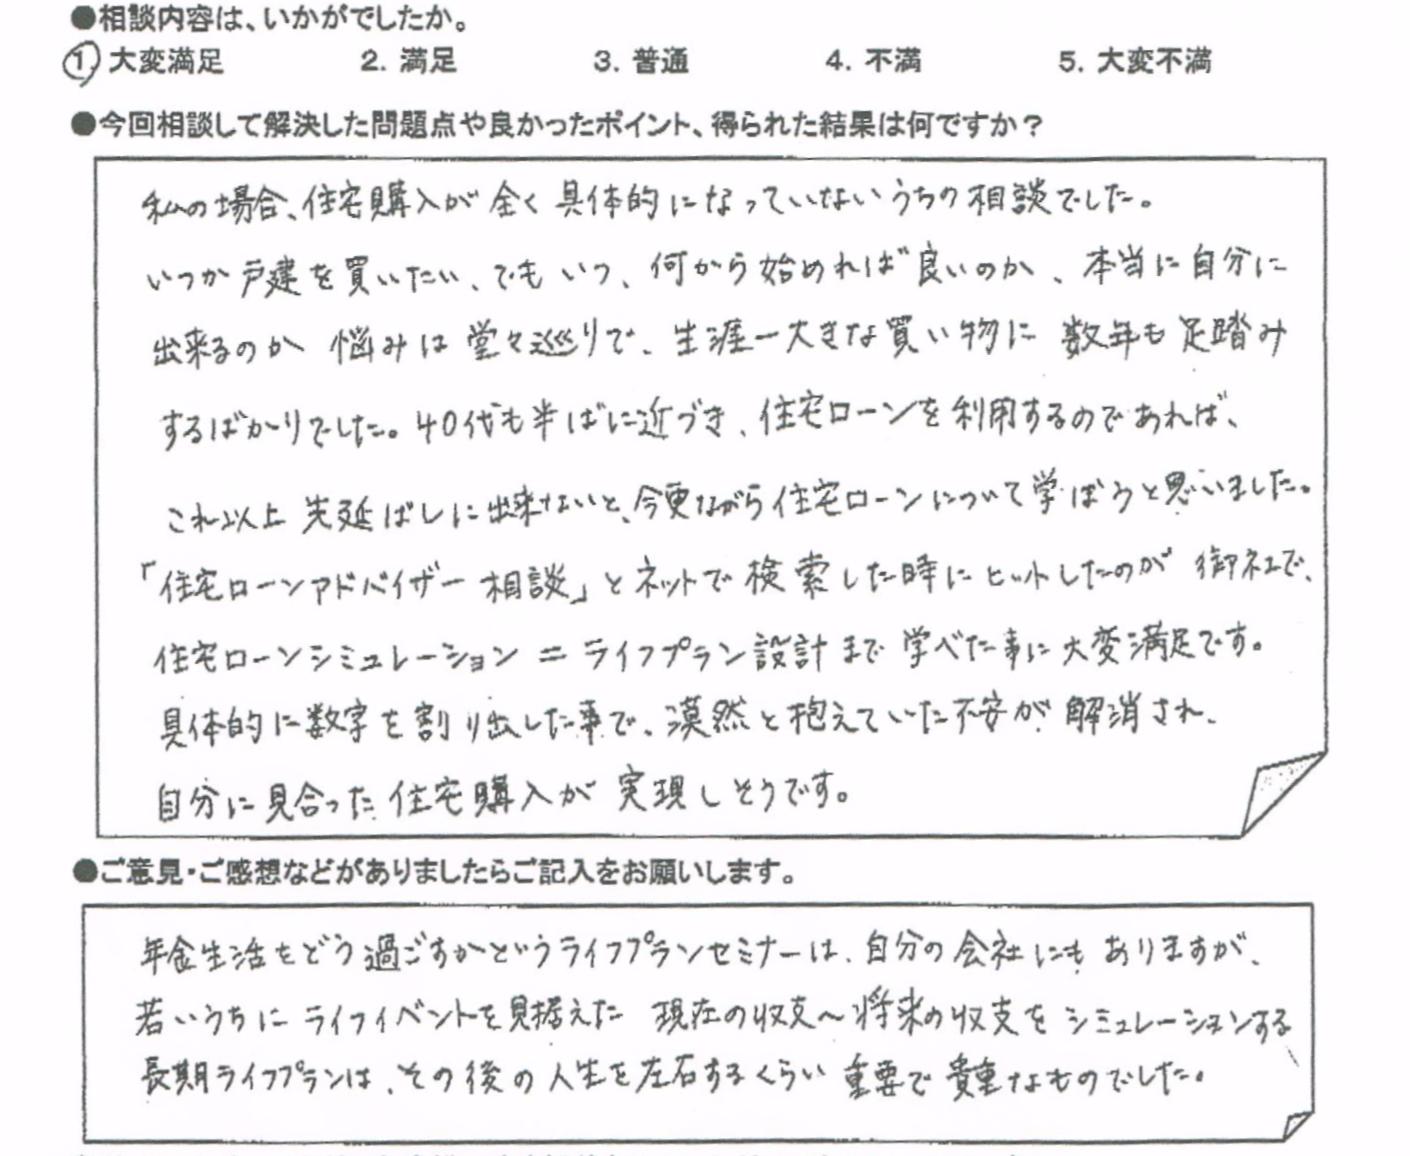 ●相談内容は、いかがでしたか。
1. 大変満足 2. 満足 3. 普通 4. 不満 5. 大変不満
●今回相談して解決した問題点や良かったポイント、得られた結果は何ですか？
私の場合、住宅購入が全く具体的になっていないうちの相談でした。
いつか戸建を買いたい、でもいつ、何から始めれば良いのか、本当に自分に
出来るのか 悩みは堂々巡りで、生涯一大きな買い物に 数年も足踏み
するばかりでした。40代も半ばに近づき、住宅ローンを利用するのであれば、
これ以上 先延ばしに出来ないと、今更ながら住宅ローンについて学ぼうと思いました。
「住宅ローンアドバイザー 相談」とネットで検索した時にヒットしたのが 御社で、
住宅ローンシミュレーション＝ライフプラン設計まで 学べた事に大変満足です。
具体的に数字を割り出した事で、漠然と抱えていた不安が解消され、
自分に見合った住宅購入が実現しそうです。
●ご意見・ご感想などがありましたらご記入をお願いします。
年金生活をどう過ごすかというライフプランセミナーは、自分の会社にもありますが、
若いうちにライフイベントを見据えた 現在の収支〜将来の収支をシミュレーションする
長期ライフプランは、その後の人生を左右するくらい 重要で貴重なものでした。